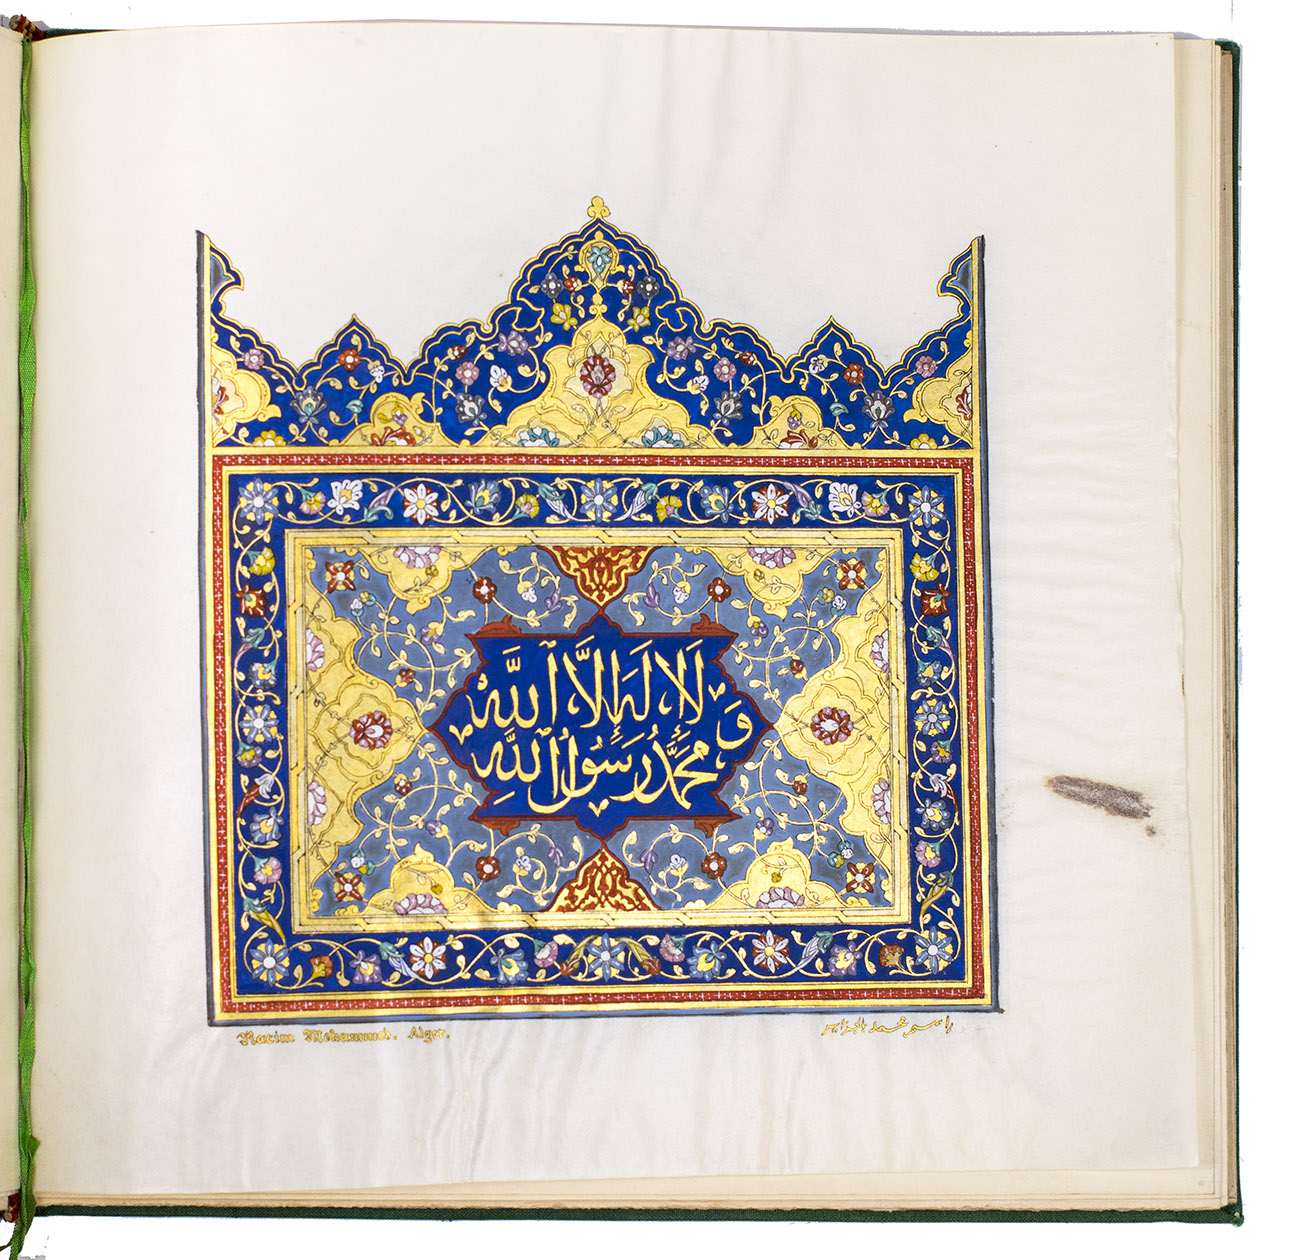 لَا إِلَٰهَ إِلَّا اللَّهُ
وَ مُحَمَّدٌ رَسُولُ اللَّهِ
Racim Mohammed. Alger.
راسم محمد الجزائر